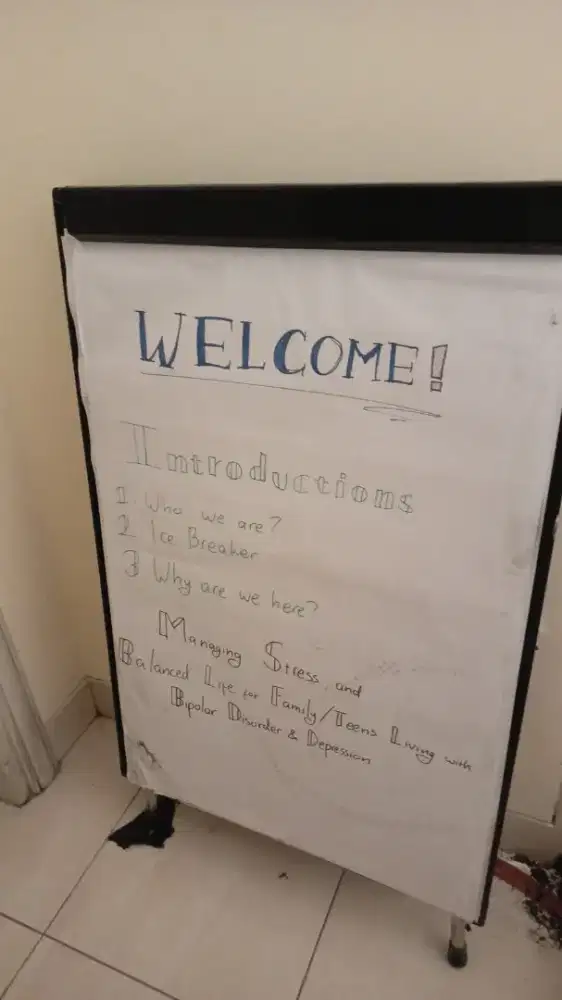 WELCOME!
Introductions
1. Who we are?
2 Ice Breaker
3 Why are we here?
Managing Stress, and
Balanced Life for Family/Teens Living with
Bipolar Disorder & Depression